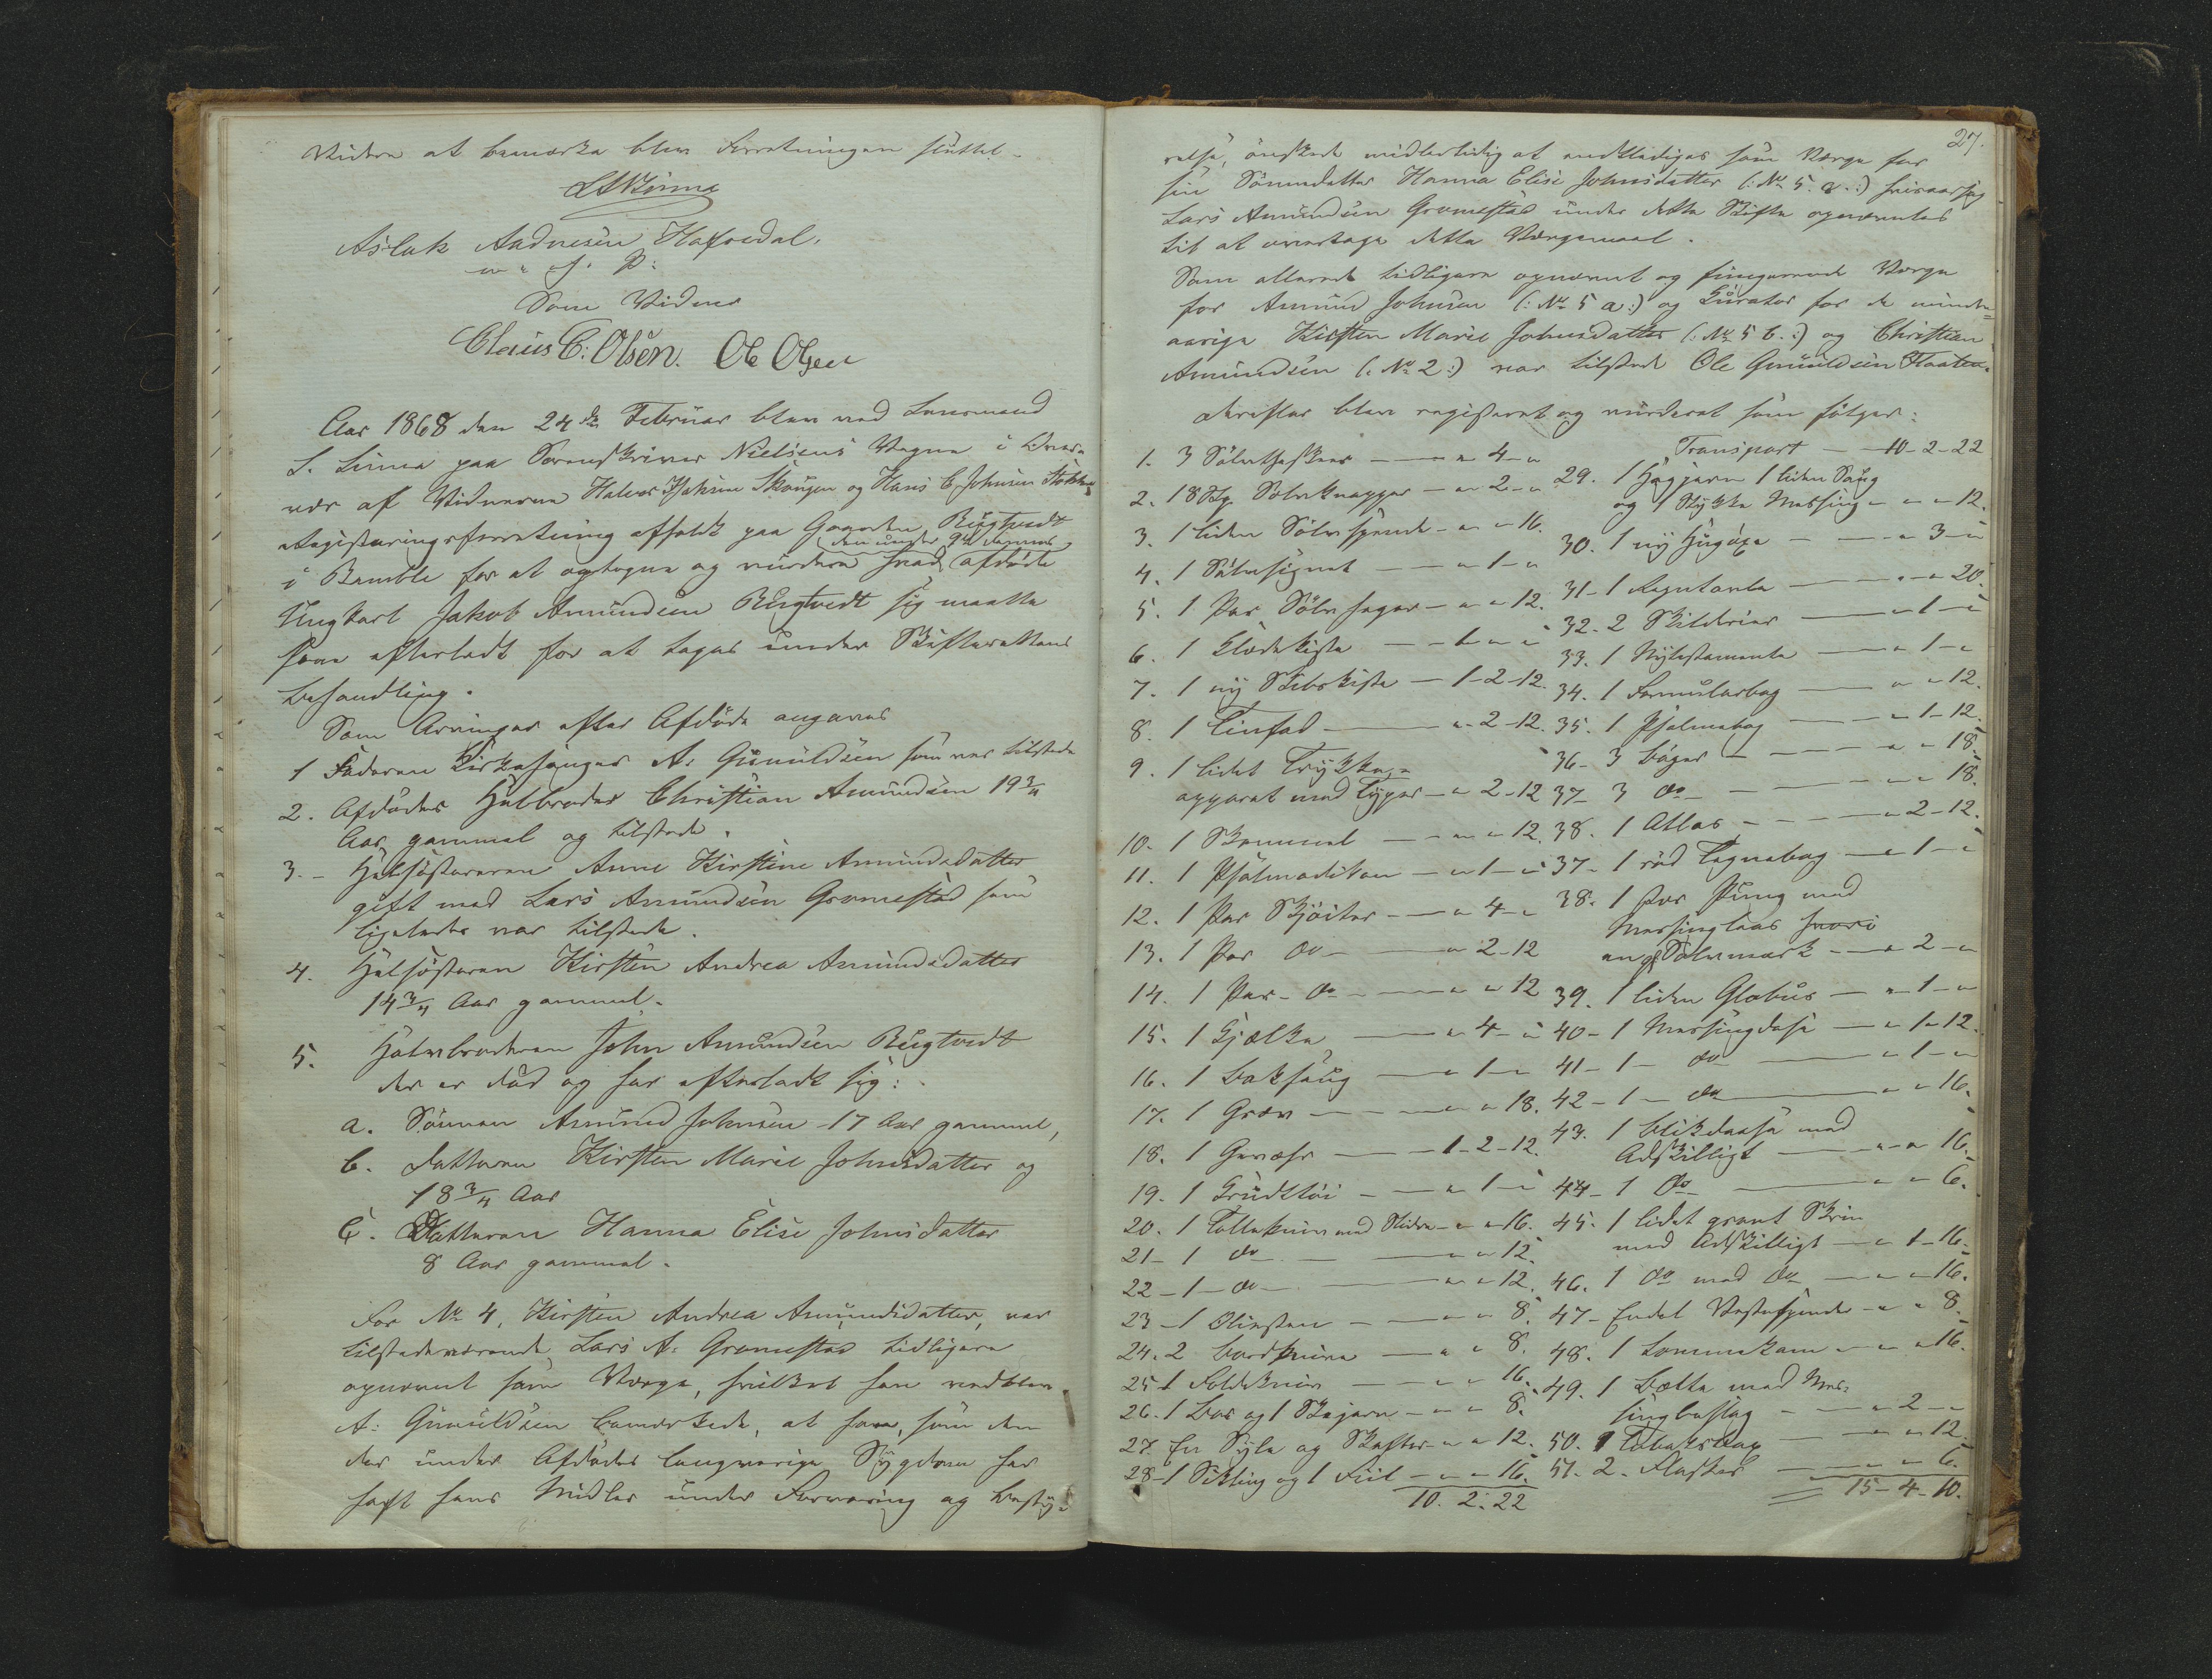 Videre at bemærke blev Forretningen sluttet.
Aslak Andresen Hafredal.
m. f. P.
Som Vidner
Claus C. Olsen. Ole Olsen
Aar 1868 den 24de Februar blev ved Lensmand
L. Linna paa Sorenskriver Nielsens Vegne i Overvær
vær af Vidnerne Halvor Skougen og Hans C. Johnsen
Registreringsforretning afholdt paa Gaarden Rugtvedt
den under 9de dennes
i Bamble for at optegne og vurdere hvad afdøde
Ungkarl Jakob Amundsen Rugtvedt sig maatte
have efterladt for at tages under Skifterettens
Behandling.
Som Arvinger efter Afdøde angaves
1 Faderen Kirkesanger A. Gunuldsen som var tilstede
2. Afdødes Halbroder Christian Amundsen 19 3/4
Aar gammel og tilstede.
3. - Halsøsteren Anne Kirstine Amundsdatter
gift med Lars Amundsen Gromestad som
ligeledes var tilstede.
4. Halsøsteren Kirsten Andrea Amundsdatter
14 3/4 Aar gammel.
5. Halvbroderen John Amundsen Rugtvedt
der er død og har efterladt sig:
a. Sønnen Amund Johnsen 17 Aar gammel,
b. Datteren Kirsten Marie Johnsdatter og
18 3/4 Aar
c. Datteren Hanna Elise Johnsdatter
8 Aar gammel.
For No 4, Kirsten Andrea Amundsdatter, var
tilstedeværende Lars A. Gromestad tidligere
opnævnt som Værge, hvilket han vedblev.
A. Gunuldsen bemærkede, at han, som den
der under Afdødes langvarige Sygdom har
havt hans Midler under Forvaring og Besty-
27.
relse, ønskede midlertidig at entledigес som Værge for
sin Sønnedatter Hanna Elise Johnsdatter (: No 5. c. :) hvisaarsag
Lars Amundsen Gromestad under dette Skifte opnævntes
til at overtage dette Værgemaal.
Som allerede tidligere opnævnt og fungerende Værge
for Amund Johnsen (: No 5 a :) og Kurator for de minder=
aarige Kirsten Marie Johnsdatter (: No 5 b. :) og Christian
Amundsen (: No 2 :) var tilstede Ole Gunuldsen Flaaten.
Derefter blev registeret og vurderet som følger:
1. 3 Sølvtheskeer - " 4 - "
2. 18 Stp. Sølvknapper - " 2 - "
3. 1 liden Sølvspænde - " - " 16.
4. 1 Sølvsignet - " 1 - "
5. 1 Par Sølvhager - " - " 12.
6. 1 Klædekiste - 1 - " - "
7. 1 ny Skibskiste - 1 - 2 - 12.
8. 1 Tinfad - " - 2 - 12.
9. 1 lidet Trykke=
apparat med Typer - " 2 - 12
10. 1 Skammel - " - " 12.
11. 1 Psalmodikon - " 1 - "
12. 1 Par Skjøiter - " 4 - "
13. 1 Par Do - " 2 - 12
14. 1 Par - Do - " - " 12
15. 1 Kjælke - " 4 - "
16. 1 Baksaug - " 1 - "
17. 1 Grev - " - " 18.
18. 1 Geværh - 1 - 2 - 12.
19. 1 Krudttøi - " 1 - "
20. 1 Tollekniv med Slire - " - " 16.
21 - 1 Do - " - " 12.
22 - 1 - Do - " - " 12.
23 - 1 Oliesten - " - " 8.
24. 2 Bordknive - " - " 8.
25 - 1 Foldekniv - " - " 16.
26. 1 Bor og 1 Skejern - " - " 8.
27. En Syle og Skafter - " - " 12.
28 - 1 Sikling og 1 Fiil - " - " 16.
10. 2. 22
Transport - 10 - 2 - 22
29. 1 Høgjern 1 liden Saug
og 1 Stykke Messing - " - " 12.
30. 1 ny Hugøxe - " 3 - "
31 - 1 Regntavle - " - " 20.
32. 2 Skilderier - " 1 - "
33. 1 Nytestamente - " 1 - "
34. 1 Formularbog - " - " 12.
35. 1 Psalmebog - " 1 - 12.
36 - 3 Bøger - " - " 18.
37 - 3 Do - " - " 18.
38. 1 Atlas - " 2 - 12.
37 - 1 rød Tegnebog - " 1 - "
38. 1 Por Pung med
Messinglaas hvori
en gl Sølvmark - " 2 - "
39. 1 liden Globus - " 1 - "
40 - 1 Messingdase - " 1 - 12.
41 - 1 - Do - " 1 - "
42 - 1 - Do - " - " 16.
43. 1 Blikdaase med
Adskilligt - " - " 16.
44 - 1 Do - " - " 6.
45. 1 lidet grønt Skrin
med Adskilligt - " 1 - 16.
46. 1 Do med Do - " - " 16.
47 - Endel Vestespænde - " - " 8.
48. 1 Lommekam - " - " 16.
49. 1 Bælte med Mes=
singbeslag - " 2 - "
50. 1 Tobaksdaas - " - " 12.
51. 2. Flasker - " - " 6.
15 - 4 - 10.